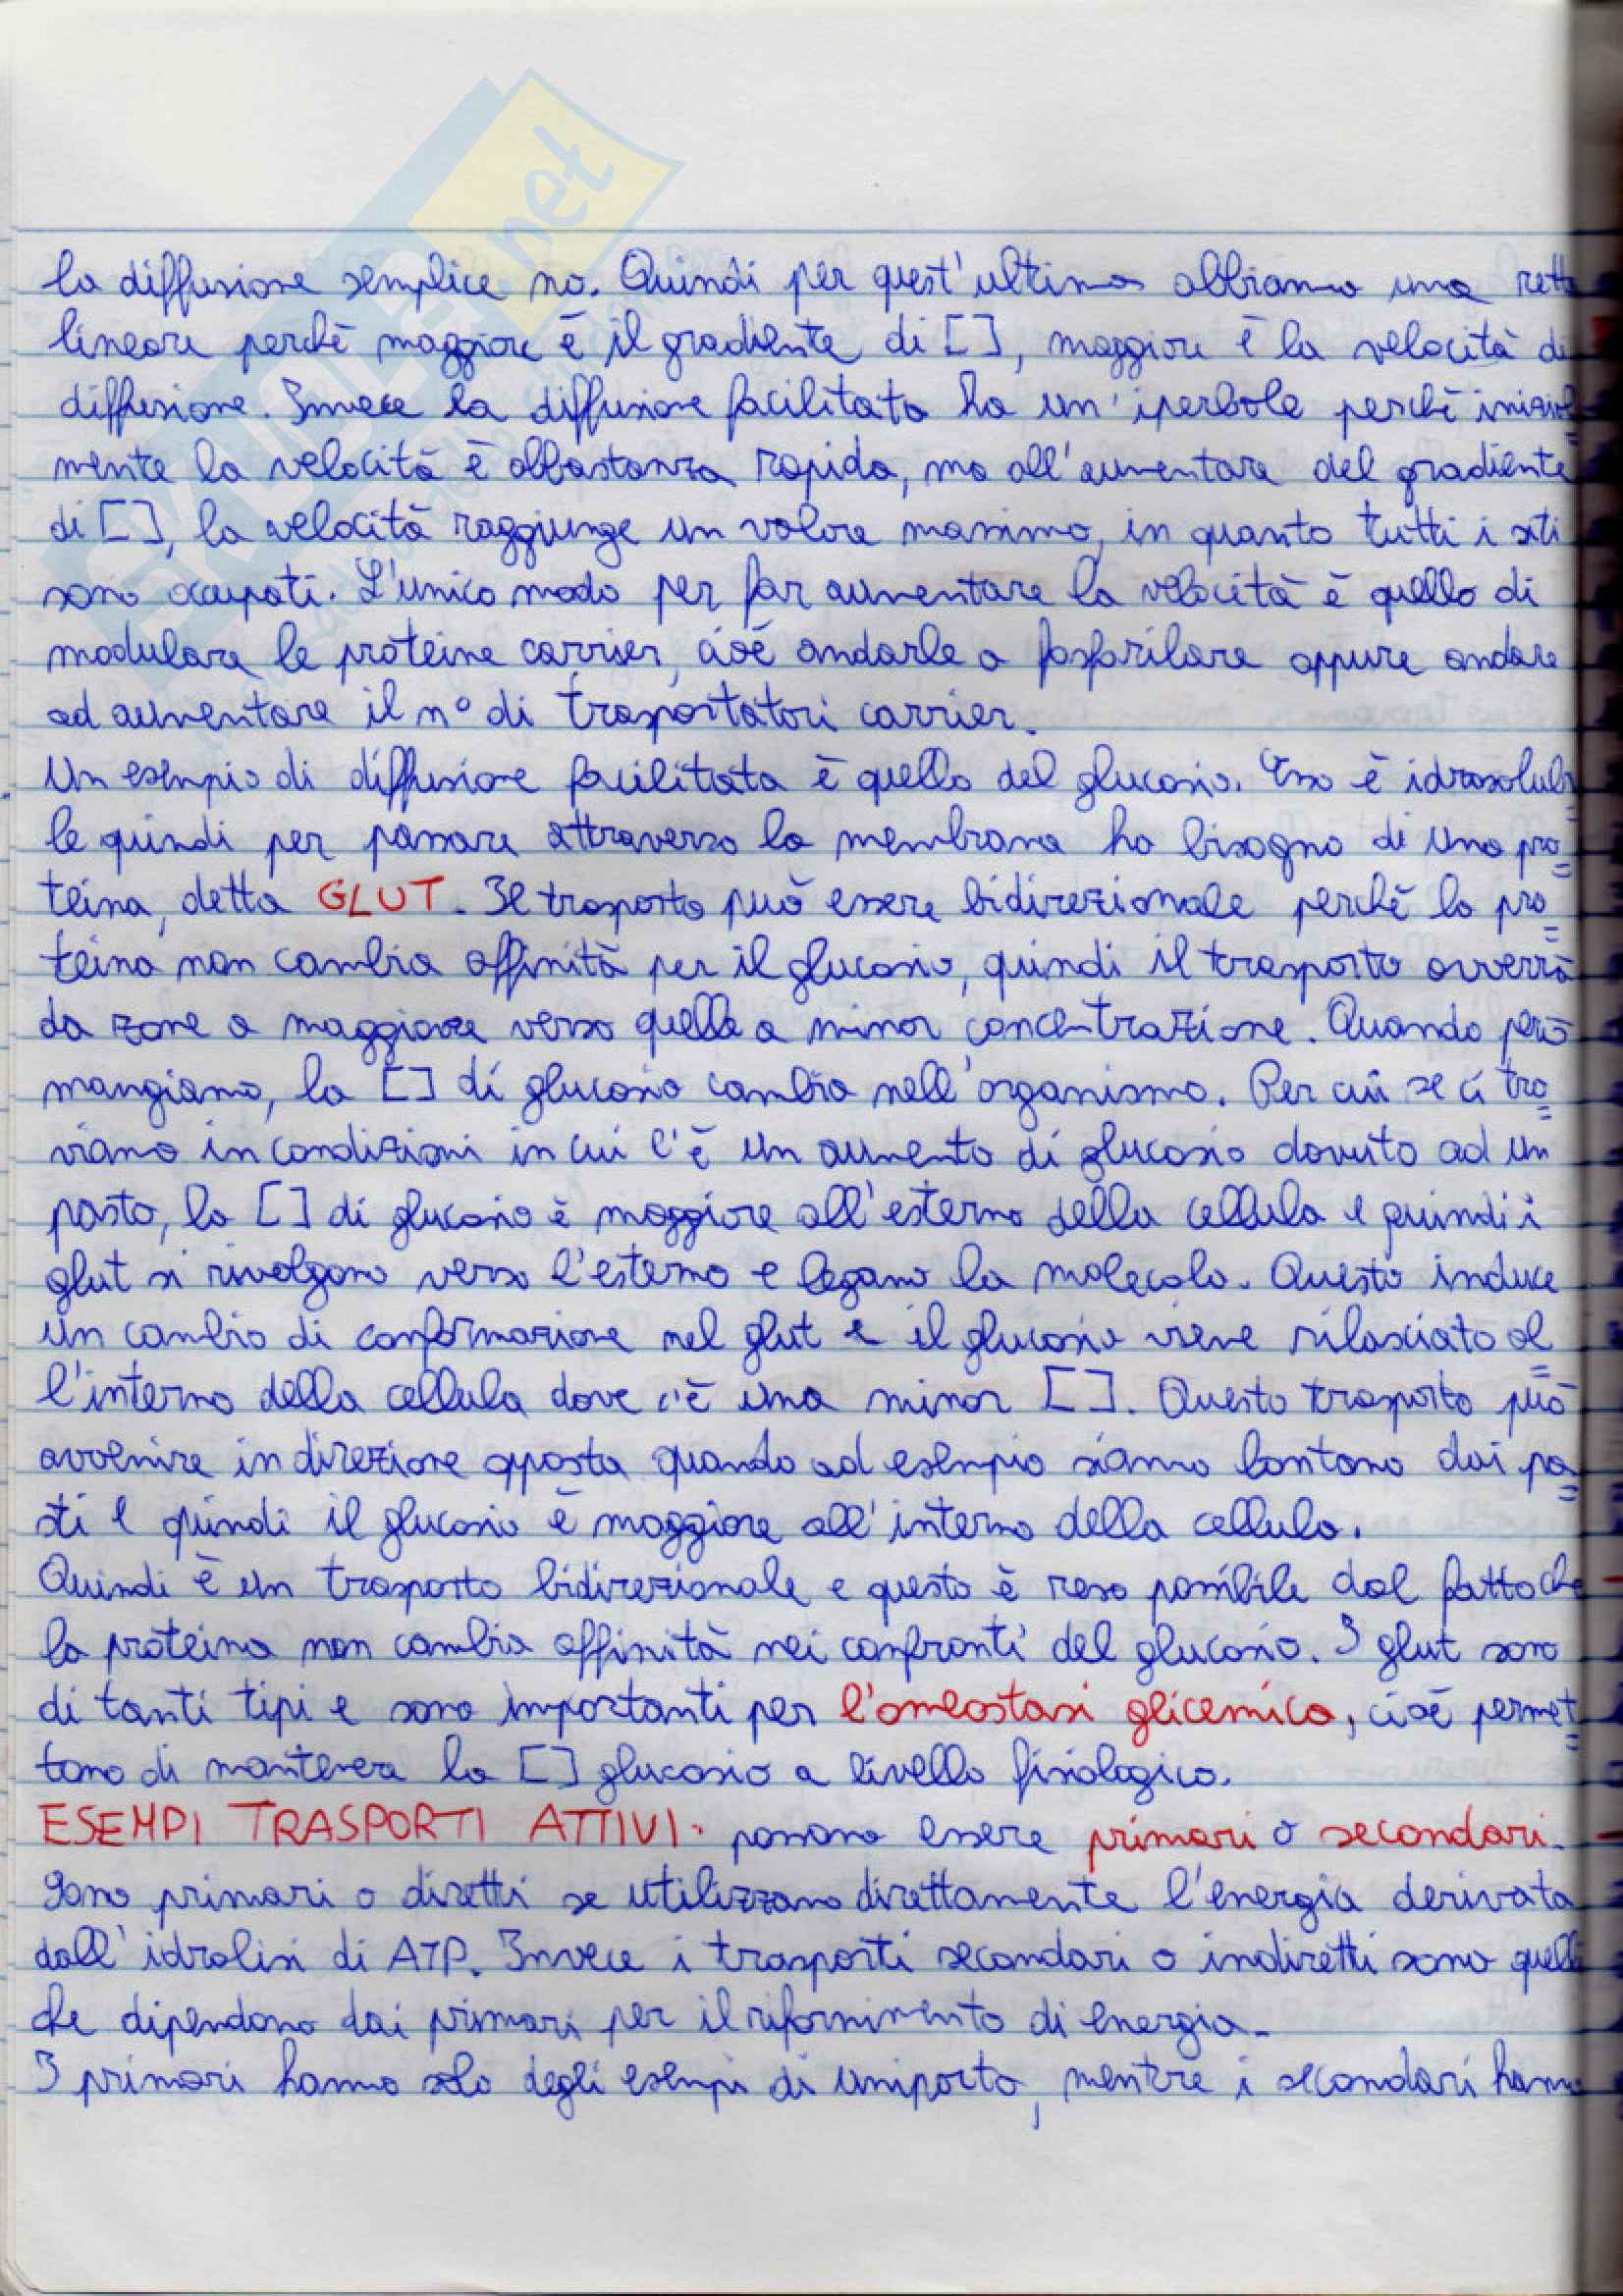 SKUOLA.net
la diffusione semplice no. Quindi per quest'ultima abbiamo una retta
lineare perchè maggiore è il gradiente di [ ], maggiore è la velocità di
diffusione. Invece la diffusione facilitata ha un'iperbole perchè inizial
mente la velocità è abbastanza rapida, ma all'aumentare del gradiente
di [ ], la velocità raggiunge un valore massimo, in quanto tutti i siti
sono occupati. L'unico modo per far aumentare la velocità è quello di
modulare le proteine carrier, cioè andarle a fosforilare oppure andare
ad aumentare il n° di trasportatori carrier.
Un esempio di diffusione facilitata è quello del glucosio. Esso è idrosolubi
le quindi per passare attraverso la membrana ha bisogno di una pro
teina, detta GLUT. Il trasporto può essere bidirezionale perchè la pro
teina non cambia affinità per il glucosio, quindi il trasporto avverrà
da zone a maggiore verso quelle a minor concentrazione. Quando però
mangiamo, la [ ] di glucosio cambia nell'organismo. Per cui se ci tro
viamo in condizioni in cui c'è un aumento di glucosio dovuto ad un
pasto, la [ ] di glucosio è maggiore all'esterno della cellula e quindi i
glut si rivolgono verso l'esterno e legano la molecola. Questo induce
un cambio di conformazione nel glut e il glucosio viene rilasciato al
l'interno della cellula dove c'è una minor [ ]. Questo trasporto può
avvenire in direzione opposta quando ad esempio siamo lontano dai pa
sti e quindi il glucosio è maggiore all'interno della cellula.
Quindi è un trasporto bidirezionale e questo è reso possibile dal fatto che
la proteina non cambia affinità nei confronti del glucosio. I glut sono
di tanti tipi e sono importanti per l'omeostasi glicemica, cioè permet
tono di mantenere la [ ] glucosio a livello fisiologico.
ESEMPI TRASPORTI ATTIVI: possono essere primari o secondari.
Sono primari o diretti se utilizzano direttamente l'energia derivata
dall'idrolisi di ATP. Invece i trasporti secondari o indiretti sono quelli
che dipendono dai primari per il rifornimento di energia.
I primari hanno solo degli esempi di uniporto, mentre i secondari hanno